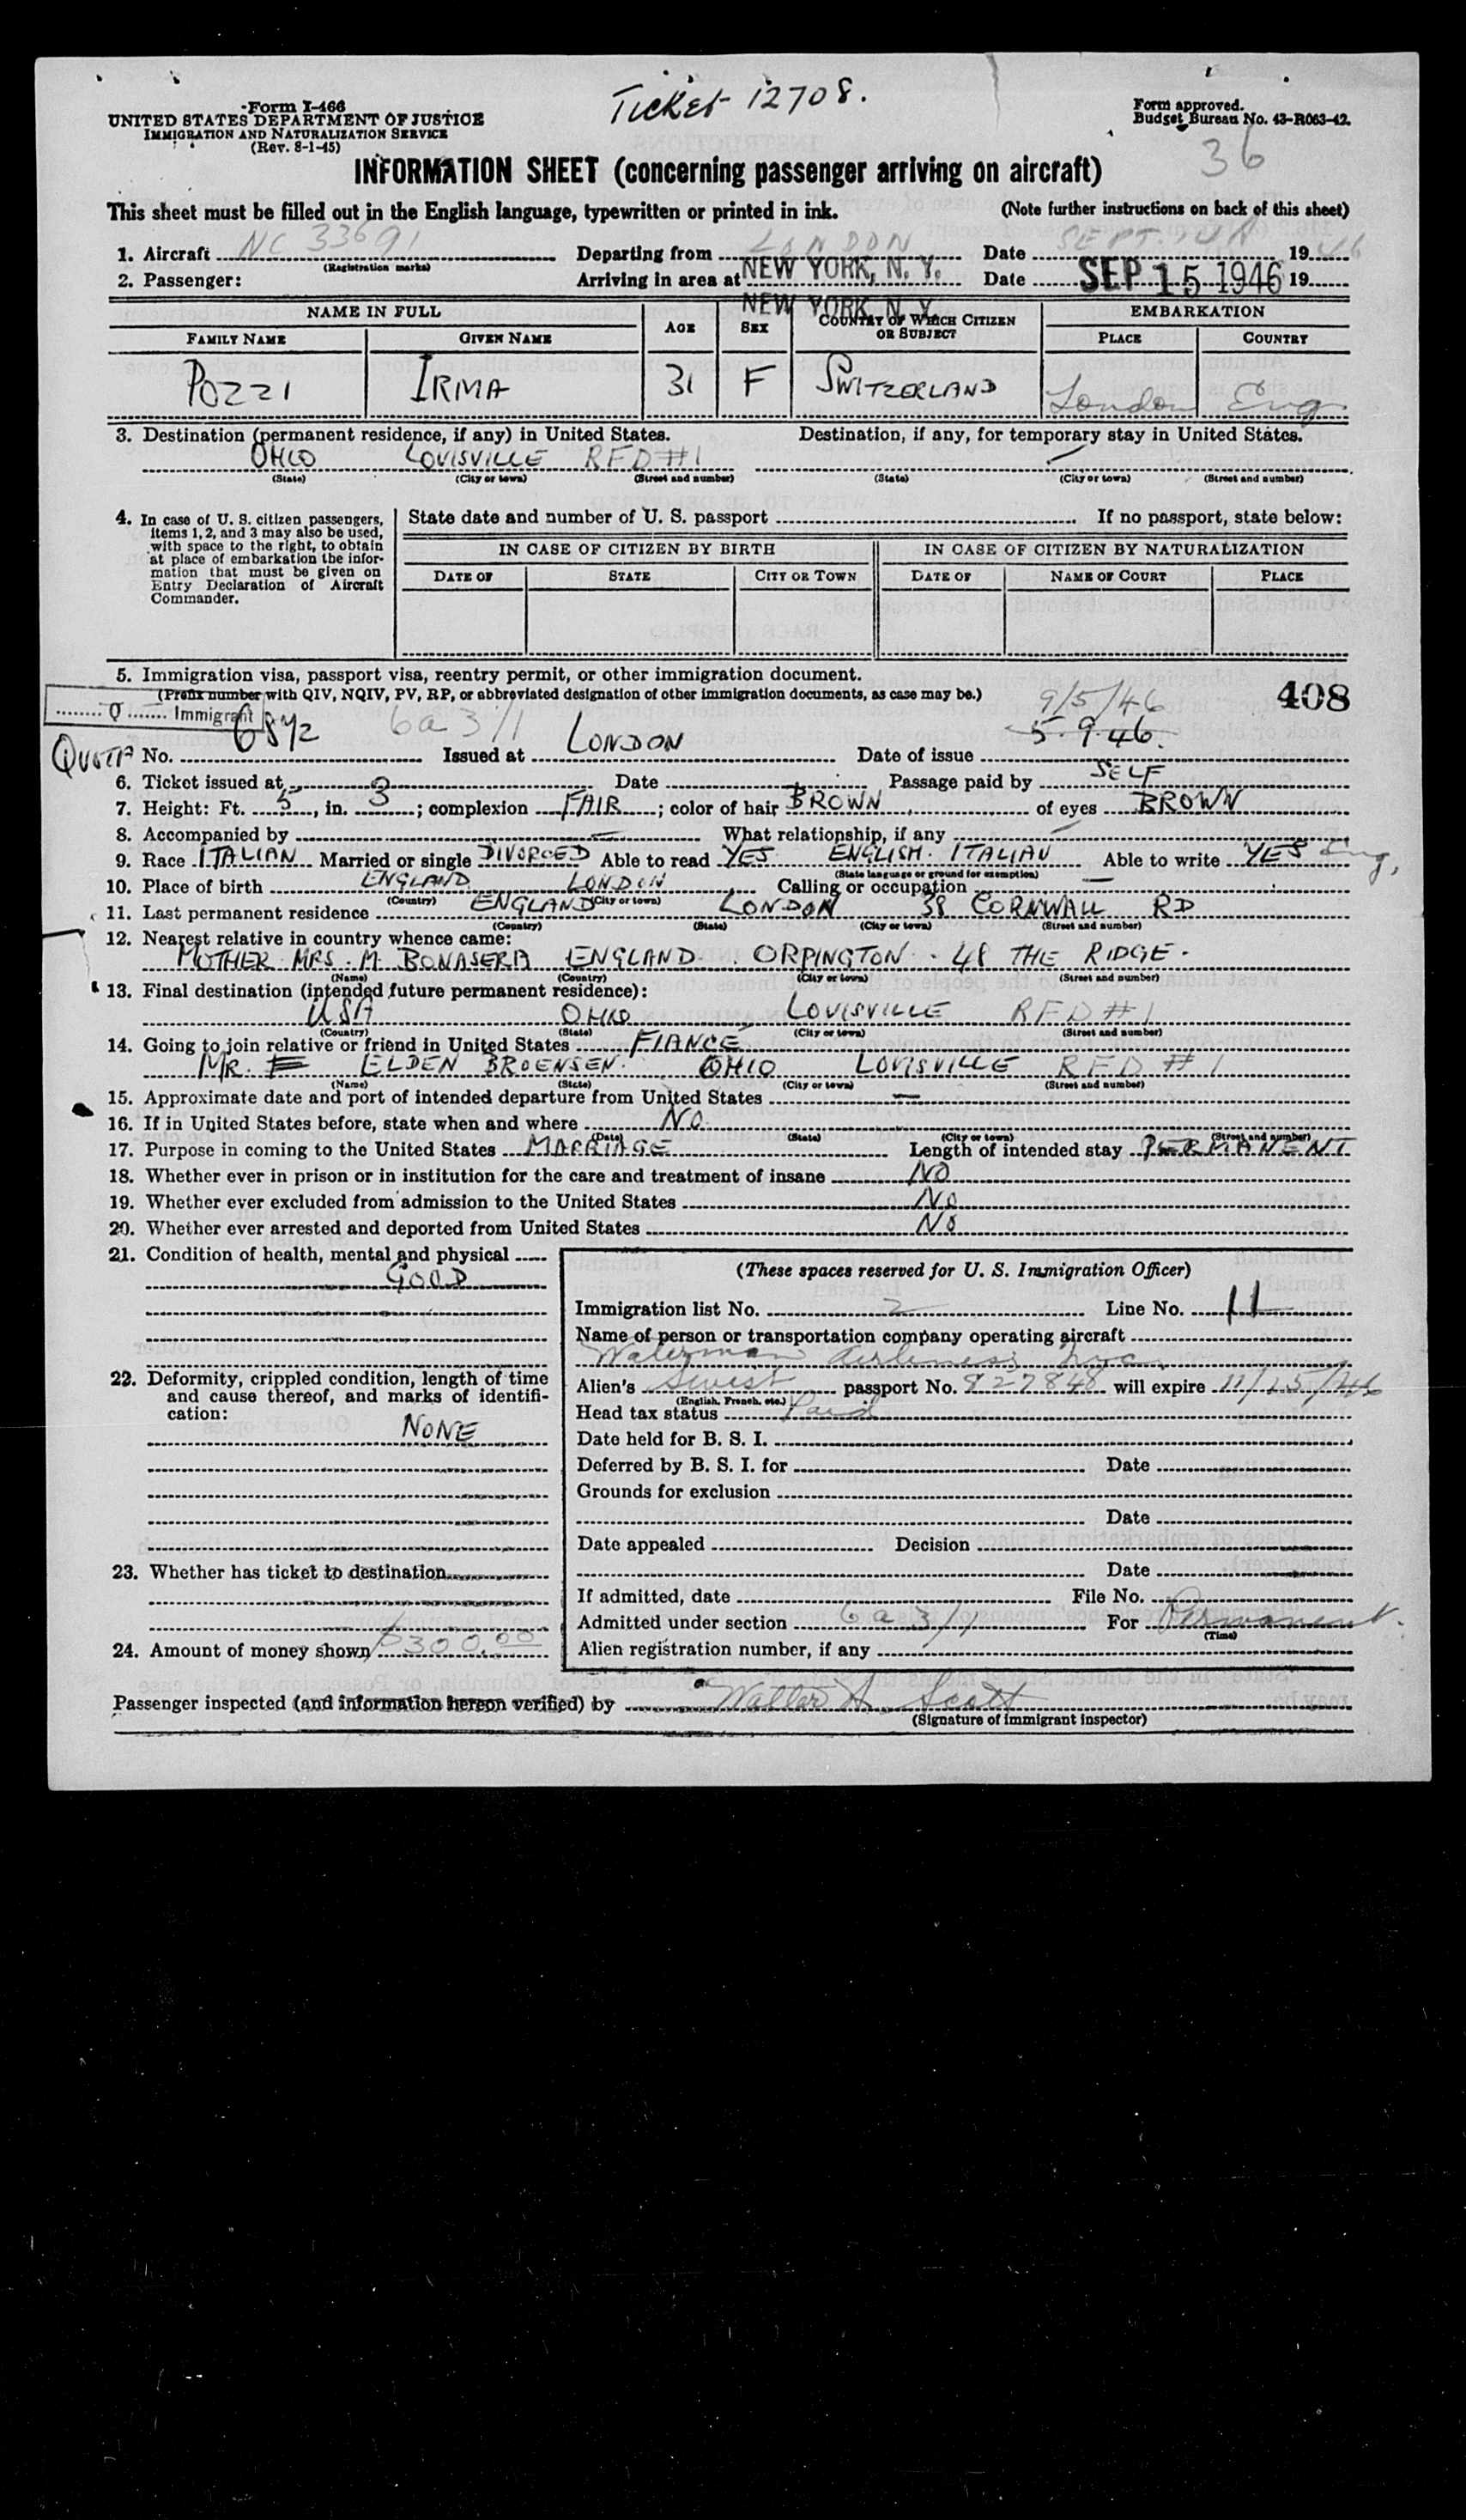 Ticket 12708.
Form I-466
UNITED STATES DEPARTMENT OF JUSTICE
IMMIGRATION AND NATURALIZATION SERVICE
(Rev. 8-1-45)
Form approved.
Budget Bureau No. 43-R063-42.
36
INFORMATION SHEET (concerning passenger arriving on aircraft)
This sheet must be filled out in the English language, typewritten or printed in ink. (Note further instructions on back of this sheet)
1. Aircraft NC 33691 Departing from LONDON Date SEPT. 14 1946
(Registration marks)
2. Passenger: Arriving in area at NEW YORK, N. Y. Date SEP 15 1946 19
NEW YORK, N. Y.
NAME IN FULL AGE SEX COUNTRY OF WHICH CITIZEN OR SUBJECT EMBARKATION
FAMILY NAME GIVEN NAME PLACE COUNTRY
POZZI IRMA 31 F SWITZERLAND London Eng.
3. Destination (permanent residence, if any) in United States. Destination, if any, for temporary stay in United States.
OHIO LOUISVILLE RFD #1 —
(State) (City or town) (Street and number) (State) (City or town) (Street and number)
4. In case of U. S. citizen passengers, items 1, 2, and 3 may also be used, with space to the right, to obtain at place of embarkation the information that must be given on Entry Declaration of Aircraft Commander.
State date and number of U. S. passport If no passport, state below:
IN CASE OF CITIZEN BY BIRTH IN CASE OF CITIZEN BY NATURALIZATION
DATE OF STATE CITY OR TOWN DATE OF NAME OF COURT PLACE
5. Immigration visa, passport visa, reentry permit, or other immigration document.
(Prefix number with QIV, NQIV, PV, RP, or abbreviated designation of other immigration documents, as case may be.)
408
Q Immigrant 6a3/1 9/5/46
QUOTA No. 6872 Issued at LONDON Date of issue 5.9.46.
6. Ticket issued at Date Passage paid by SELF
7. Height: Ft. 5, in. 3; complexion FAIR; color of hair BROWN of eyes BROWN
8. Accompanied by — What relationship, if any —
9. Race ITALIAN Married or single DIVORCED Able to read YES ENGLISH. ITALIAN Able to write YES Eng.
(State language or ground for exemption)
10. Place of birth ENGLAND LONDON Calling or occupation —
(Country) (City or town)
11. Last permanent residence ENGLAND LONDON 38 CORNWALL RD
(Country) (State) (City or town) (Street and number)
12. Nearest relative in country whence came:
MOTHER MRS. M. BONASERA ENGLAND. ORPINGTON. 48 THE RIDGE.
(Name) (Country) (City or town) (Street and number)
13. Final destination (intended future permanent residence):
USA OHIO LOUISVILLE RFD #1
(Country) (State) (City or town) (Street and number)
14. Going to join relative or friend in United States FIANCE
MR. E ELDEN BROENSEN. OHIO LOUISVILLE RFD #1
(Name) (State) (City or town) (Street and number)
15. Approximate date and port of intended departure from United States —
16. If in United States before, state when and where NO.
(Date) (State) (City or town) (Street and number)
17. Purpose in coming to the United States MARRIAGE Length of intended stay PERMANENT
18. Whether ever in prison or in institution for the care and treatment of insane NO
19. Whether ever excluded from admission to the United States NO
20. Whether ever arrested and deported from United States NO
21. Condition of health, mental and physical
GOOD
22. Deformity, crippled condition, length of time and cause thereof, and marks of identification:
NONE
23. Whether has ticket to destination
24. Amount of money shown $300.00
(These spaces reserved for U. S. Immigration Officer)
Immigration list No. 2 Line No. 11
Name of person or transportation company operating aircraft
Waterman Airlines Inc.
Alien's Swiss passport No. 927848 will expire 11/25/46
(English, French, etc.)
Head tax status Paid
Date held for B. S. I.
Deferred by B. S. I. for Date
Grounds for exclusion
Date
Date appealed Decision
Date
If admitted, date File No.
Admitted under section 6a3/1 For Permanent.
(Time)
Alien registration number, if any
Passenger inspected (and information hereon verified) by Walter A. Scott
(Signature of immigrant inspector)